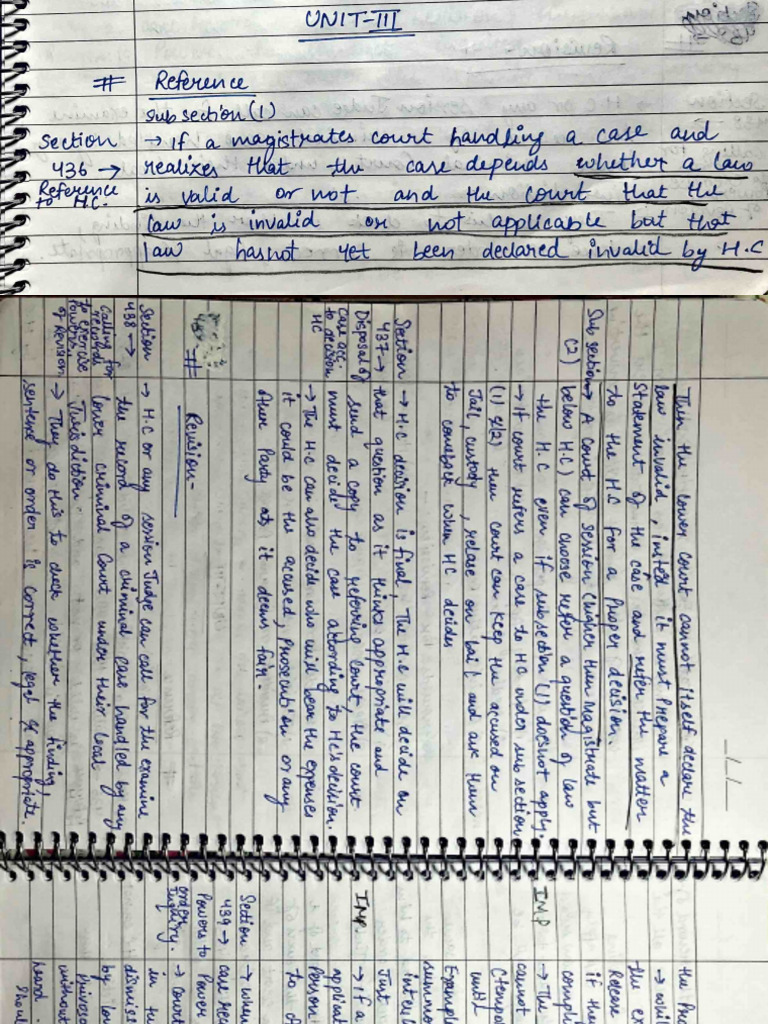 UNIT-III
# Reference
Sub section (1)
Section → If a magistrates court handling a case and
436 → realizes that the case depends whether a law
Reference is valid or not and the court that the
to HC. law is invalid or not applicable but that
law has not yet been declared invalid by H.C
_/_/_
Then the lower court cannot itself declare the
law invalid, insted it must Prepare a
Statement of the case and refer the matter
to the HC for a Proper decision.
Sub section → A court of session (higher then Magistrate but
(2) below H.C) can choose refer a question of law
the H.C even if subsection (1) doesnot apply.
→ If court refers a case to HC under sub section
(1) & (2) then court can keep the accused on
Jail, custody, release on bail and ask them
to comeback when HC decides
Section → H.C decision is final, The H.C will decide on
437 → that question as it thinks appropriate and
Disposal of send a copy to referring court, the court
case acc. must decide the case according to Hc's decision.
to decision → The H.C can also decide who will bear the expenses
HC it could be the accused, prosecution or any
other Party as it deems fair.
# Revision-
Section → H.C or any session Judge can call for the examine
438 → the record of a criminal case handled by any
calling for lower criminal Court under their local
records Jurisdiction.
to exercise → They do this to check whether the finding,
Powers sentence or order is correct, legal & appropriate.
of Revision
the Pr
→ whil
the ex
Release
if the
IMP
compl
→ The
cannot
(temp
until
Example
summo
interl
IMP. Just
→ If a
applicat
Person
to
Section → when
439 → case rec
Powers to Power
order → Court
Inquiry. in
dismiss
by lo
Previous
without
heard.
Shou